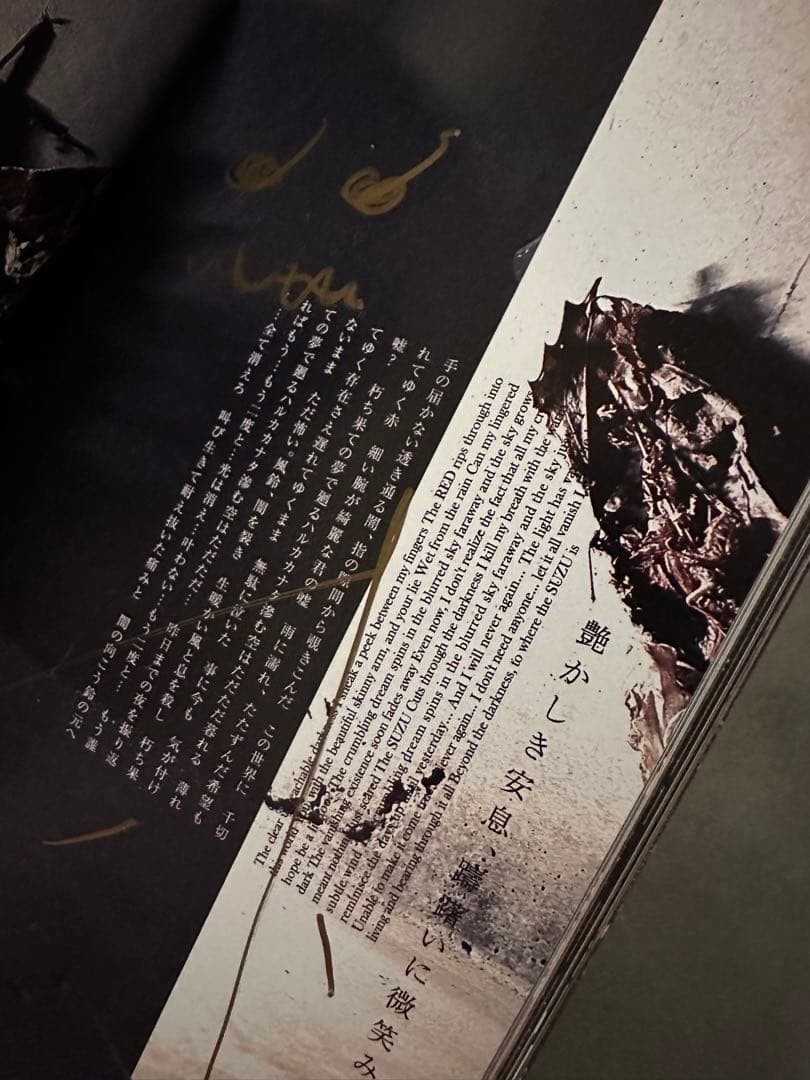 手の届かない透き通る闇、指の隙間から覗きこんだ この世界に 千切
れてゆく赤 細い腕が綺麗な君の嘘 雨に濡れ、 ただずんだ希望も
嘘? 朽ち果ての夢で廻るハルカカナタ滲む空はただただ暮れる 薄れ
てゆく存在さえ遅れてゆくまま 無駄に泣いた 事に今も 気が付け
ないまま ただ怖い。風鈴、闇を裂き 生暖かい風と息を殺し 朽ち果
ての夢で廻るハルカカナタ滲む空はただただ… 昨日までの夜を振り返
ればもう…もう二度と…光は消えた 叶わない…もう二度と… もう誰
…全て消えろ 叫び生きて耐え抜いた痛みと 闇の向こう鈴の元へ
The clear unreachable darkness, sneak a peek between my fingers The RED rips through into
this world with the beautiful skinny arm, and your lie Wet from the rain Can my lingered
hope be a lie too? The crumbling dream spins in the blurred sky faraway and the sky grows
dark The vanishing existence soon fades away Even now, I don't realize the fact that all my
meant nothing Just scared The SUZU Cuts through the darkness I kill my breath with the
subtle wind The crumbling dream spins in the blurred sky faraway and the sky
reminisce the days up until yesterday... And I will never again... The light has
Unable to make it come true Never again... I don't need anyone... let it all vanish I
living and bearing through it all Beyond the darkness, to where the SUZU is
艶かしき安息、躊躇いに微笑み